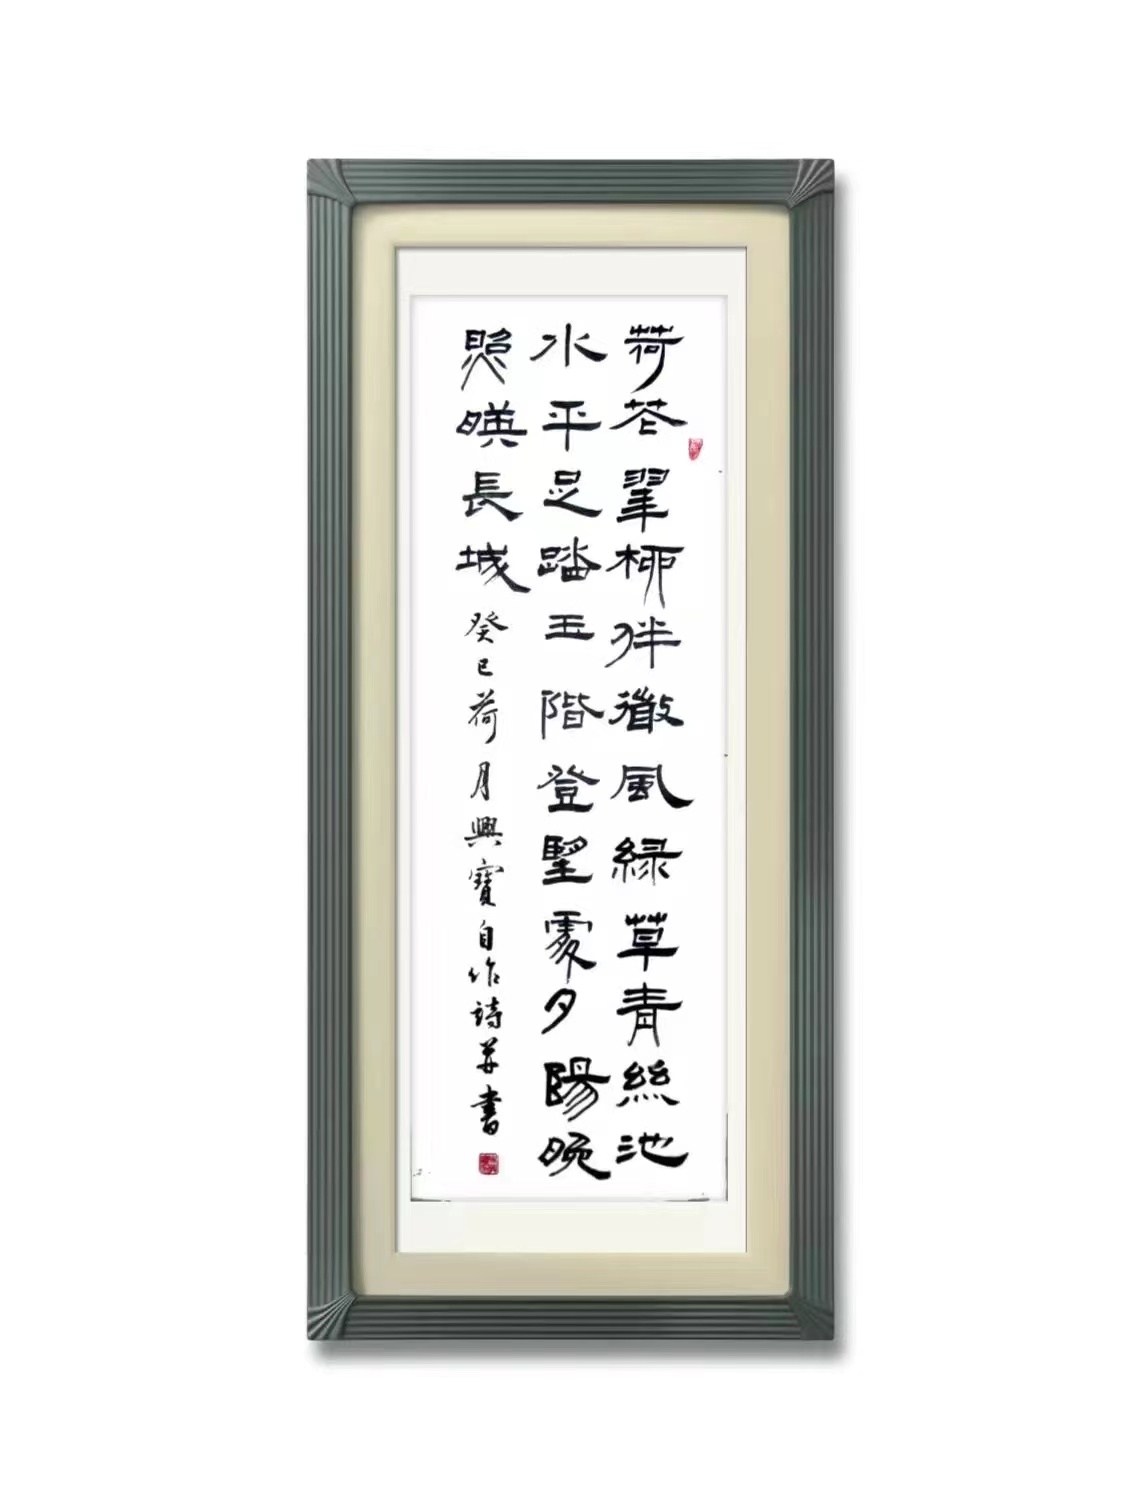 荷花翠柳伴微風綠草青絲池
水平足踏玉階登望處夕陽晚
照映長城癸巳荷月興寶自作詩並書